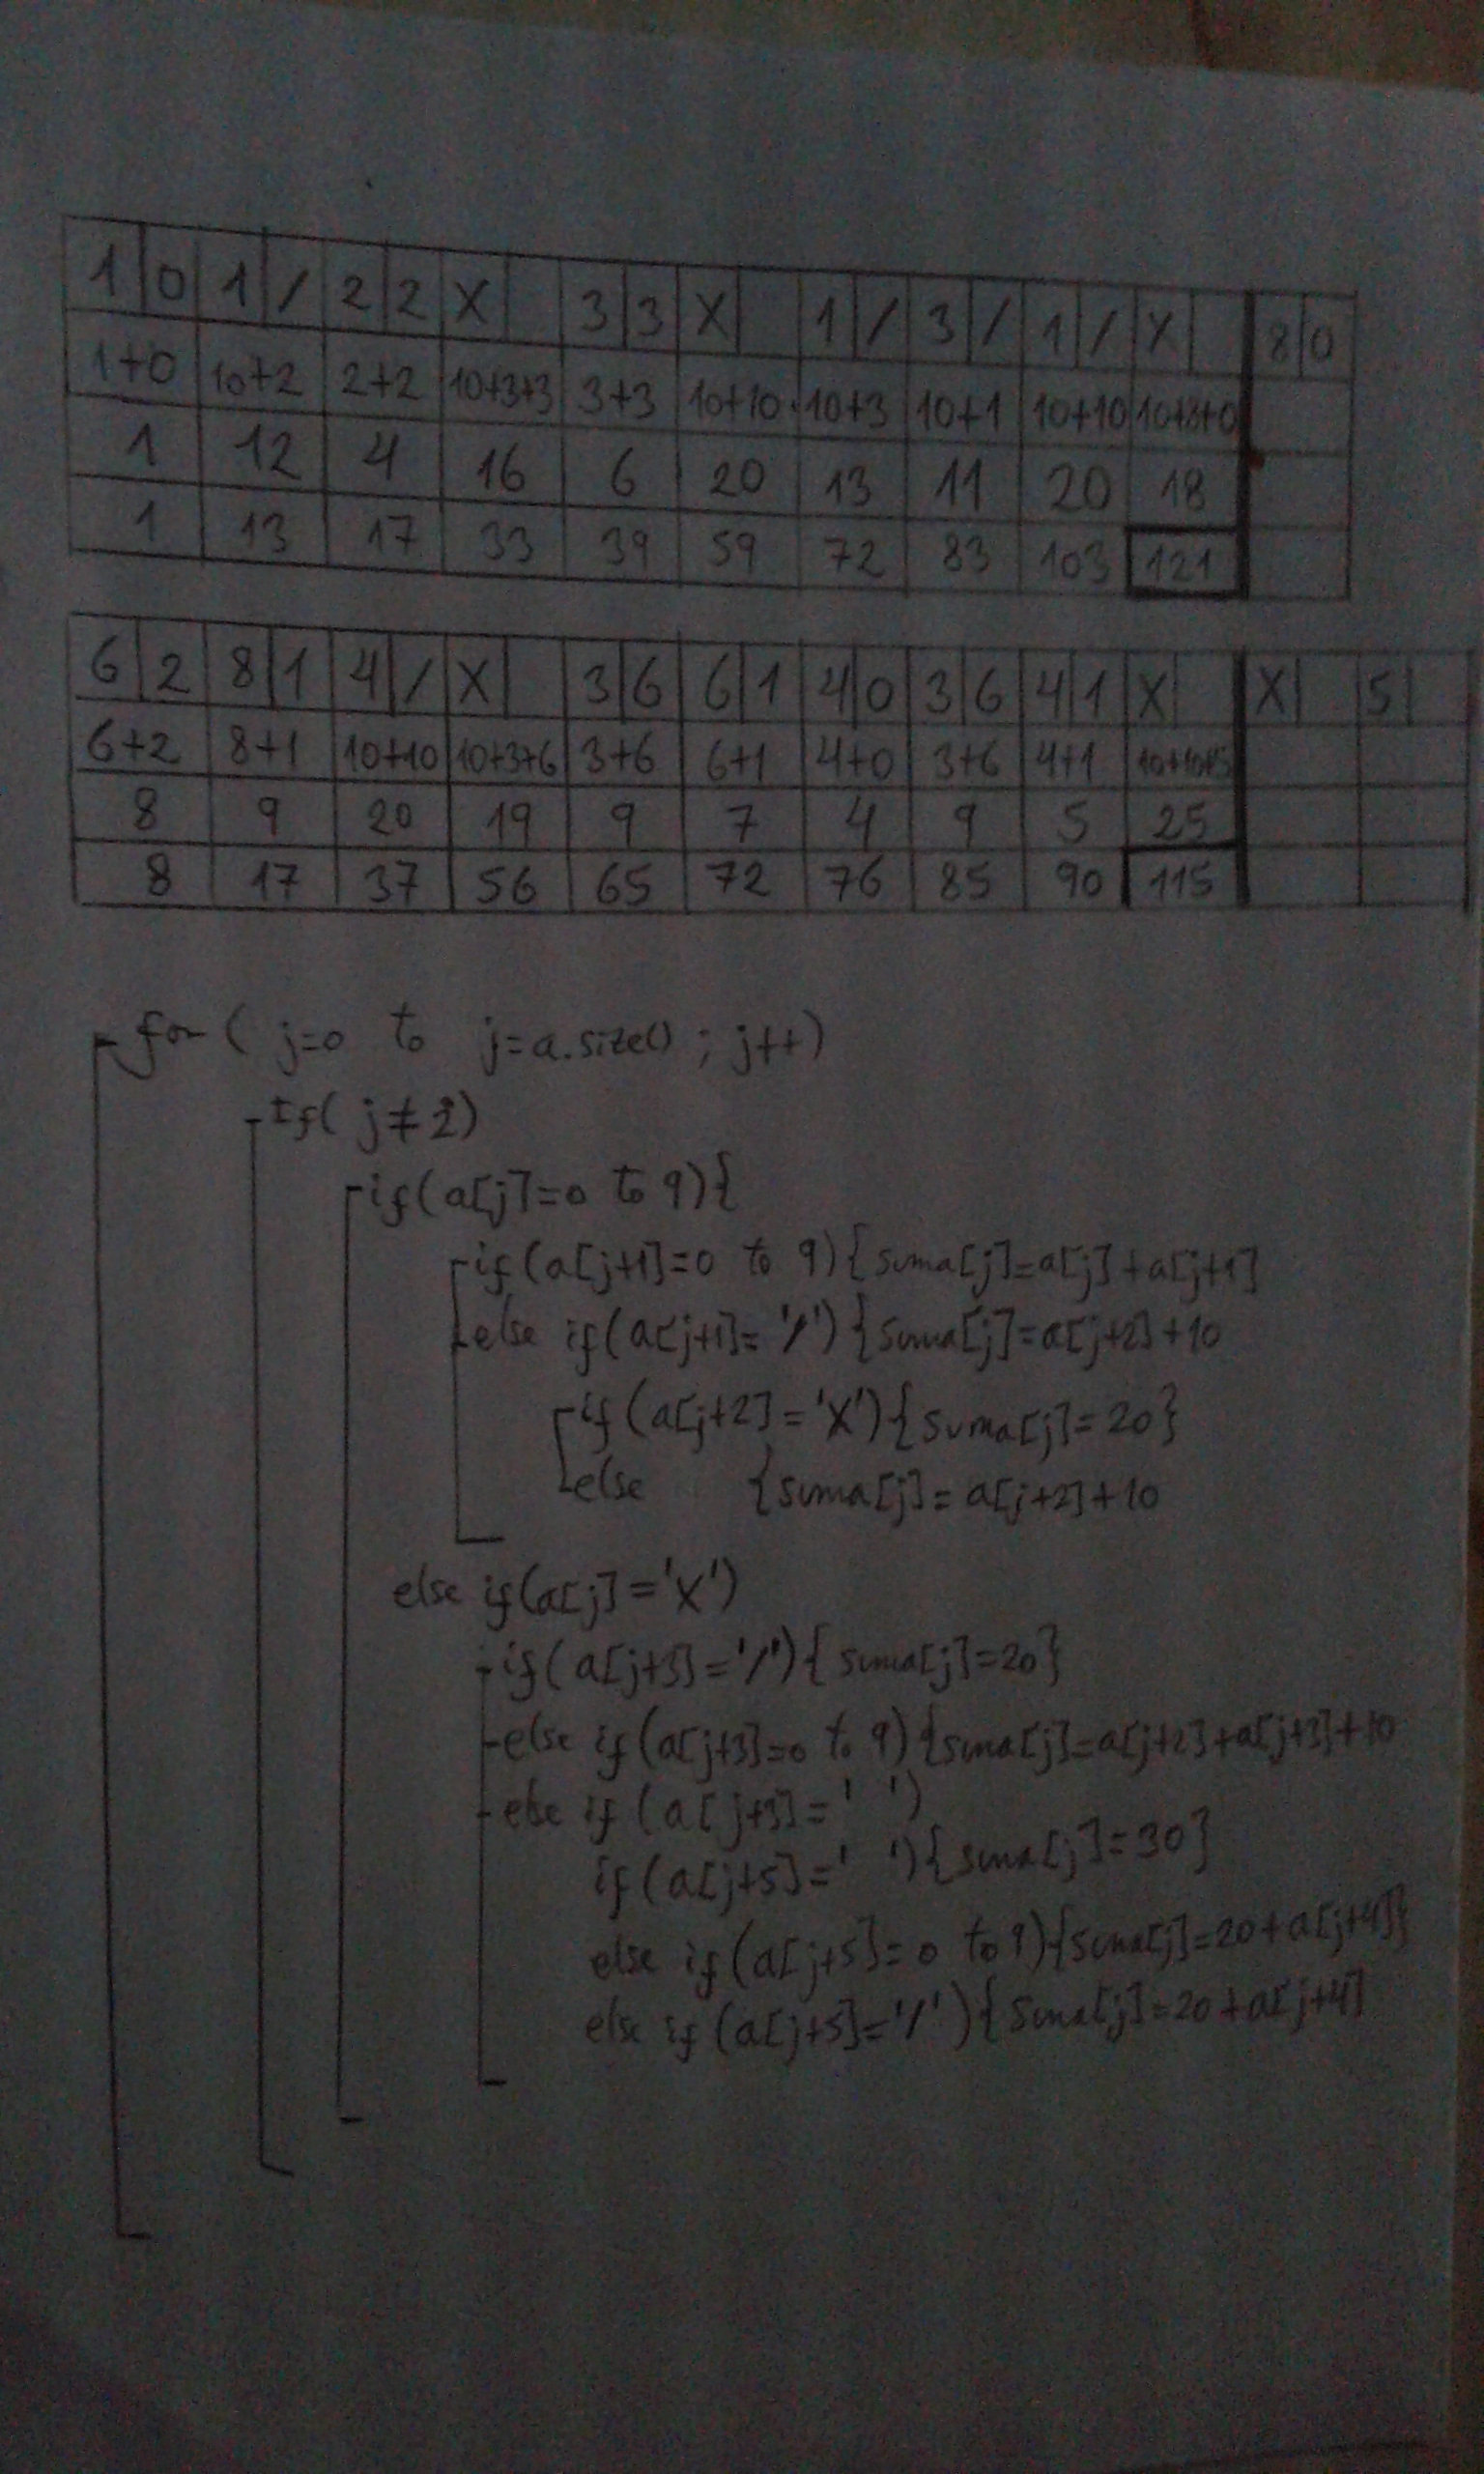 1 0 1 / 2 2 X 3 3 X 1 / 3 / 1 / X 8 0
1+0 10+2 2+2 10+3+3 3+3 10+10 10+3 10+1 10+10 10+8+0
1 12 4 16 6 20 13 11 20 18
1 13 17 33 39 59 72 83 103 121
6 2 8 1 4 / X 3 6 6 1 4 0 3 6 4 1 X X 5
6+2 8+1 10+10 10+3+6 3+6 6+1 4+0 3+6 4+1 10+10+5
8 9 20 19 9 7 4 9 5 25
8 17 37 56 65 72 76 85 90 115
for ( j=0 to j=a.size() ; j++)
if( j≠2)
if(a[j]=0 to 9){
if(a[j+1]=0 to 9){suma[j]=a[j]+a[j+1]
else if(a[j+1]='/'){suma[j]=a[j+2]+10
if(a[j+2]='X'){suma[j]=20}
else {suma[j]=a[j+2]+10
else if(a[j]='X')
if(a[j+3]='/'){suma[j]=20}
else if(a[j+3]=0 to 9){suma[j]=a[j+2]+a[j+3]+10
else if(a[j+3]=' ')
if(a[j+5]=' '){suma[j]=30}
else if(a[j+5]=0 to 9){suma[j]=20+a[j+4]}
else if(a[j+5]='/'){suma[j]=20+a[j+4]